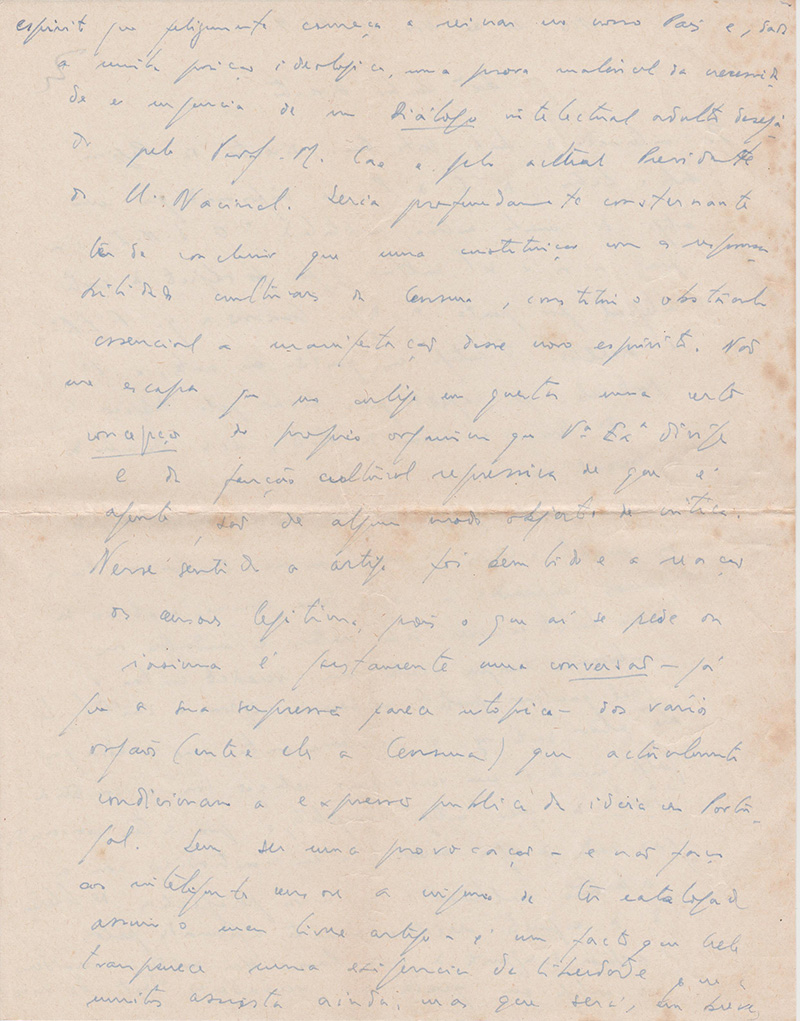 espírito que felizmente começa a reinar no nosso País e, dada
a minha posição ideológica, uma prova material da necessida
de e urgencia de um Diálogo intelectual adulto deseja
do pelo Prof. M. Cae e pelo actual Presidente
da U. Nacional. Seria profundamente consternante
ter de concluir que uma instituição com as responsa
bilidades culturais da Censura, constitui o obstáculo
essencial a manifestação desse novo espírito. Não
me escapa que no artigo em questão uma certa
concepção do proprio organismo que Vª Exª dirige
e da função cultural repressiva de que é
agente, são de algum modo objecto de critica.
Nesse sentido o artigo foi bem lido e a reacção
os censores legitima, pois o que aí se pede ou
insinua é justamente uma conversão – já
que a sua supressão parece utopica – dos vários
orgãos (entre eles a Censura) que actualmente
condicionam a expressão publica da ideia em Portu
gal. Sem ser uma provocação – e não faço
ao inteligente censor a injuria de ter catalogado
assim o meu livre artigo – é um facto que nele
transparece uma exigencia de liberdade que a
muitos assusta ainda, mas que será, em breve,